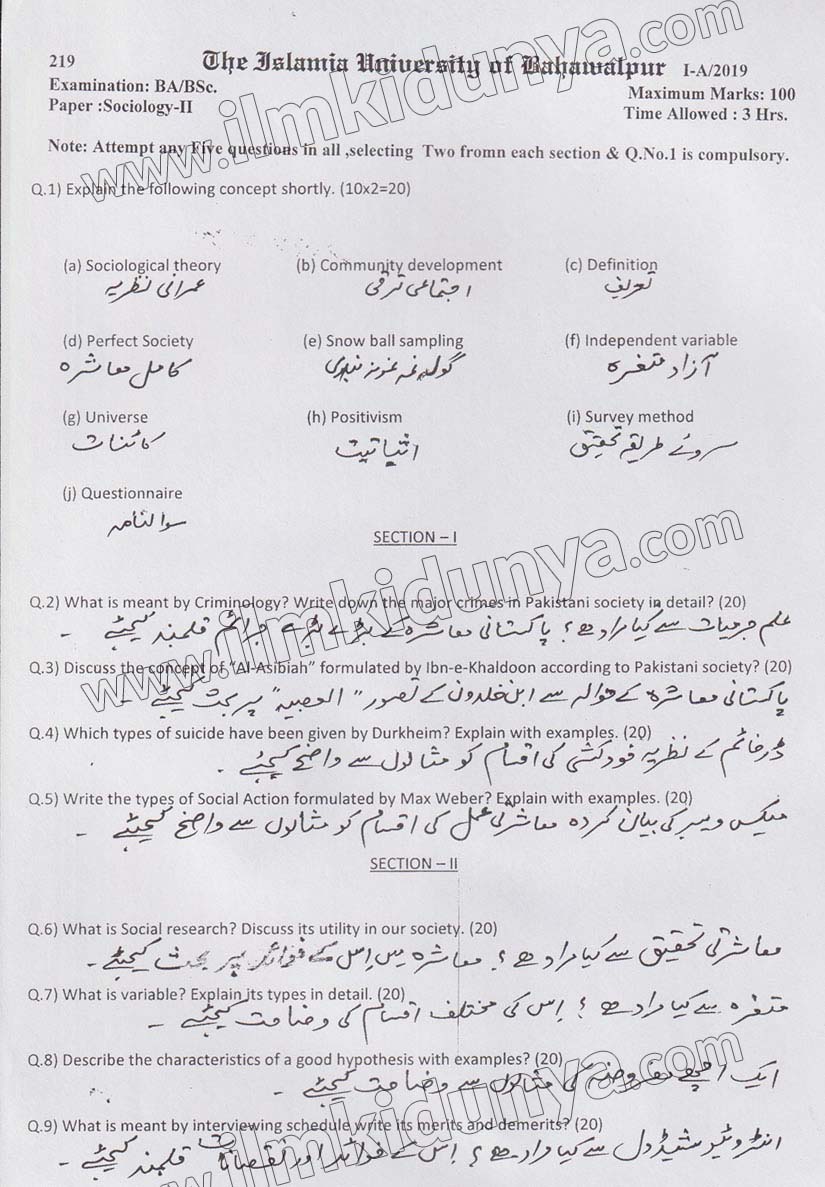 219 The Islamia University of Bahawalpur I-A/2019
Examination: BA/BSc. Maximum Marks: 100
Paper :Sociology-II Time Allowed : 3 Hrs.
Note: Attempt any Five questions in all ,selecting Two fromn each section & Q.No.1 is compulsory.
Q.1) Explain the following concept shortly. (10x2=20)
(a) Sociological theory (b) Community development (c) Definition
عمرانی نظریہ اجتماعی ترقی تعریف
(d) Perfect Society (e) Snow ball sampling (f) Independent variable
کامل معاشرہ آزاد متغیرہ
(g) Universe (h) Positivism (i) Survey method
کائنات اثباتیت سروے طریقہ تحقیق
(j) Questionnaire
سوالنامہ
SECTION – I
Q.2) What is meant by Criminology? Write down the major crimes in Pakistani society in detail? (20)
علم جرمیات سے کیا مراد ہے؟ پاکستانی معاشرہ کے بڑے بڑے جرائم قلمبند کیجئے -
Q.3) Discuss the concept of "Al-Asibiah" formulated by Ibn-e-Khaldoon according to Pakistani society? (20)
پاکستانی معاشرہ کے حوالہ سے ابن خلدون کے تصور "العصبیہ" پر بحث کیجئے -
Q.4) Which types of suicide have been given by Durkheim? Explain with examples. (20)
ڈرخائم کے نظریہ خودکشی کی اقسام کو مثالوں سے واضح کیجئے -
Q.5) Write the types of Social Action formulated by Max Weber? Explain with examples. (20)
میکس ویبر کی بیان کردہ معاشرتی عمل کی اقسام کو مثالوں سے واضح کیجئے -
SECTION – II
Q.6) What is Social research? Discuss its utility in our society. (20)
معاشرتی تحقیق سے کیا مراد ہے؟ معاشرہ میں اس کے فوائد پر بحث کیجئے -
Q.7) What is variable? Explain its types in detail. (20)
متغیرہ سے کیا مراد ہے؟ اِس کی مختلف اقسام کی وضاحت کیجئے -
Q.8) Describe the characteristics of a good hypothesis with examples? (20)
ایک اچھے مفروضہ کی مثالوں سے وضاحت کیجئے -
Q.9) What is meant by interviewing schedule write its merits and demerits? (20)
انٹرویو شیڈول سے کیا مراد ہے؟ اِس کے فوائد اور نقصانات قلمبند کیجئے -
www.ilmkidunya.com
www.ilmkidunya.com
www.ilmkidunya.com